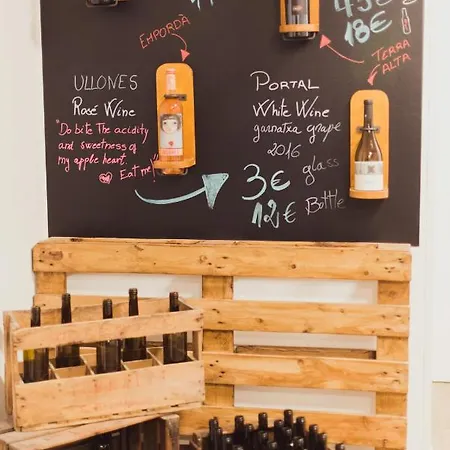 18€
EMPORDÀ
TERRA
ALTA
ULLONES
Rosé Wine
"Do bite The acidity
and sweetness of
my apple heart.
Eat me!"
PORTAL
White Wine
garnatxa grape
2016
3€ glass
12€ Bottle